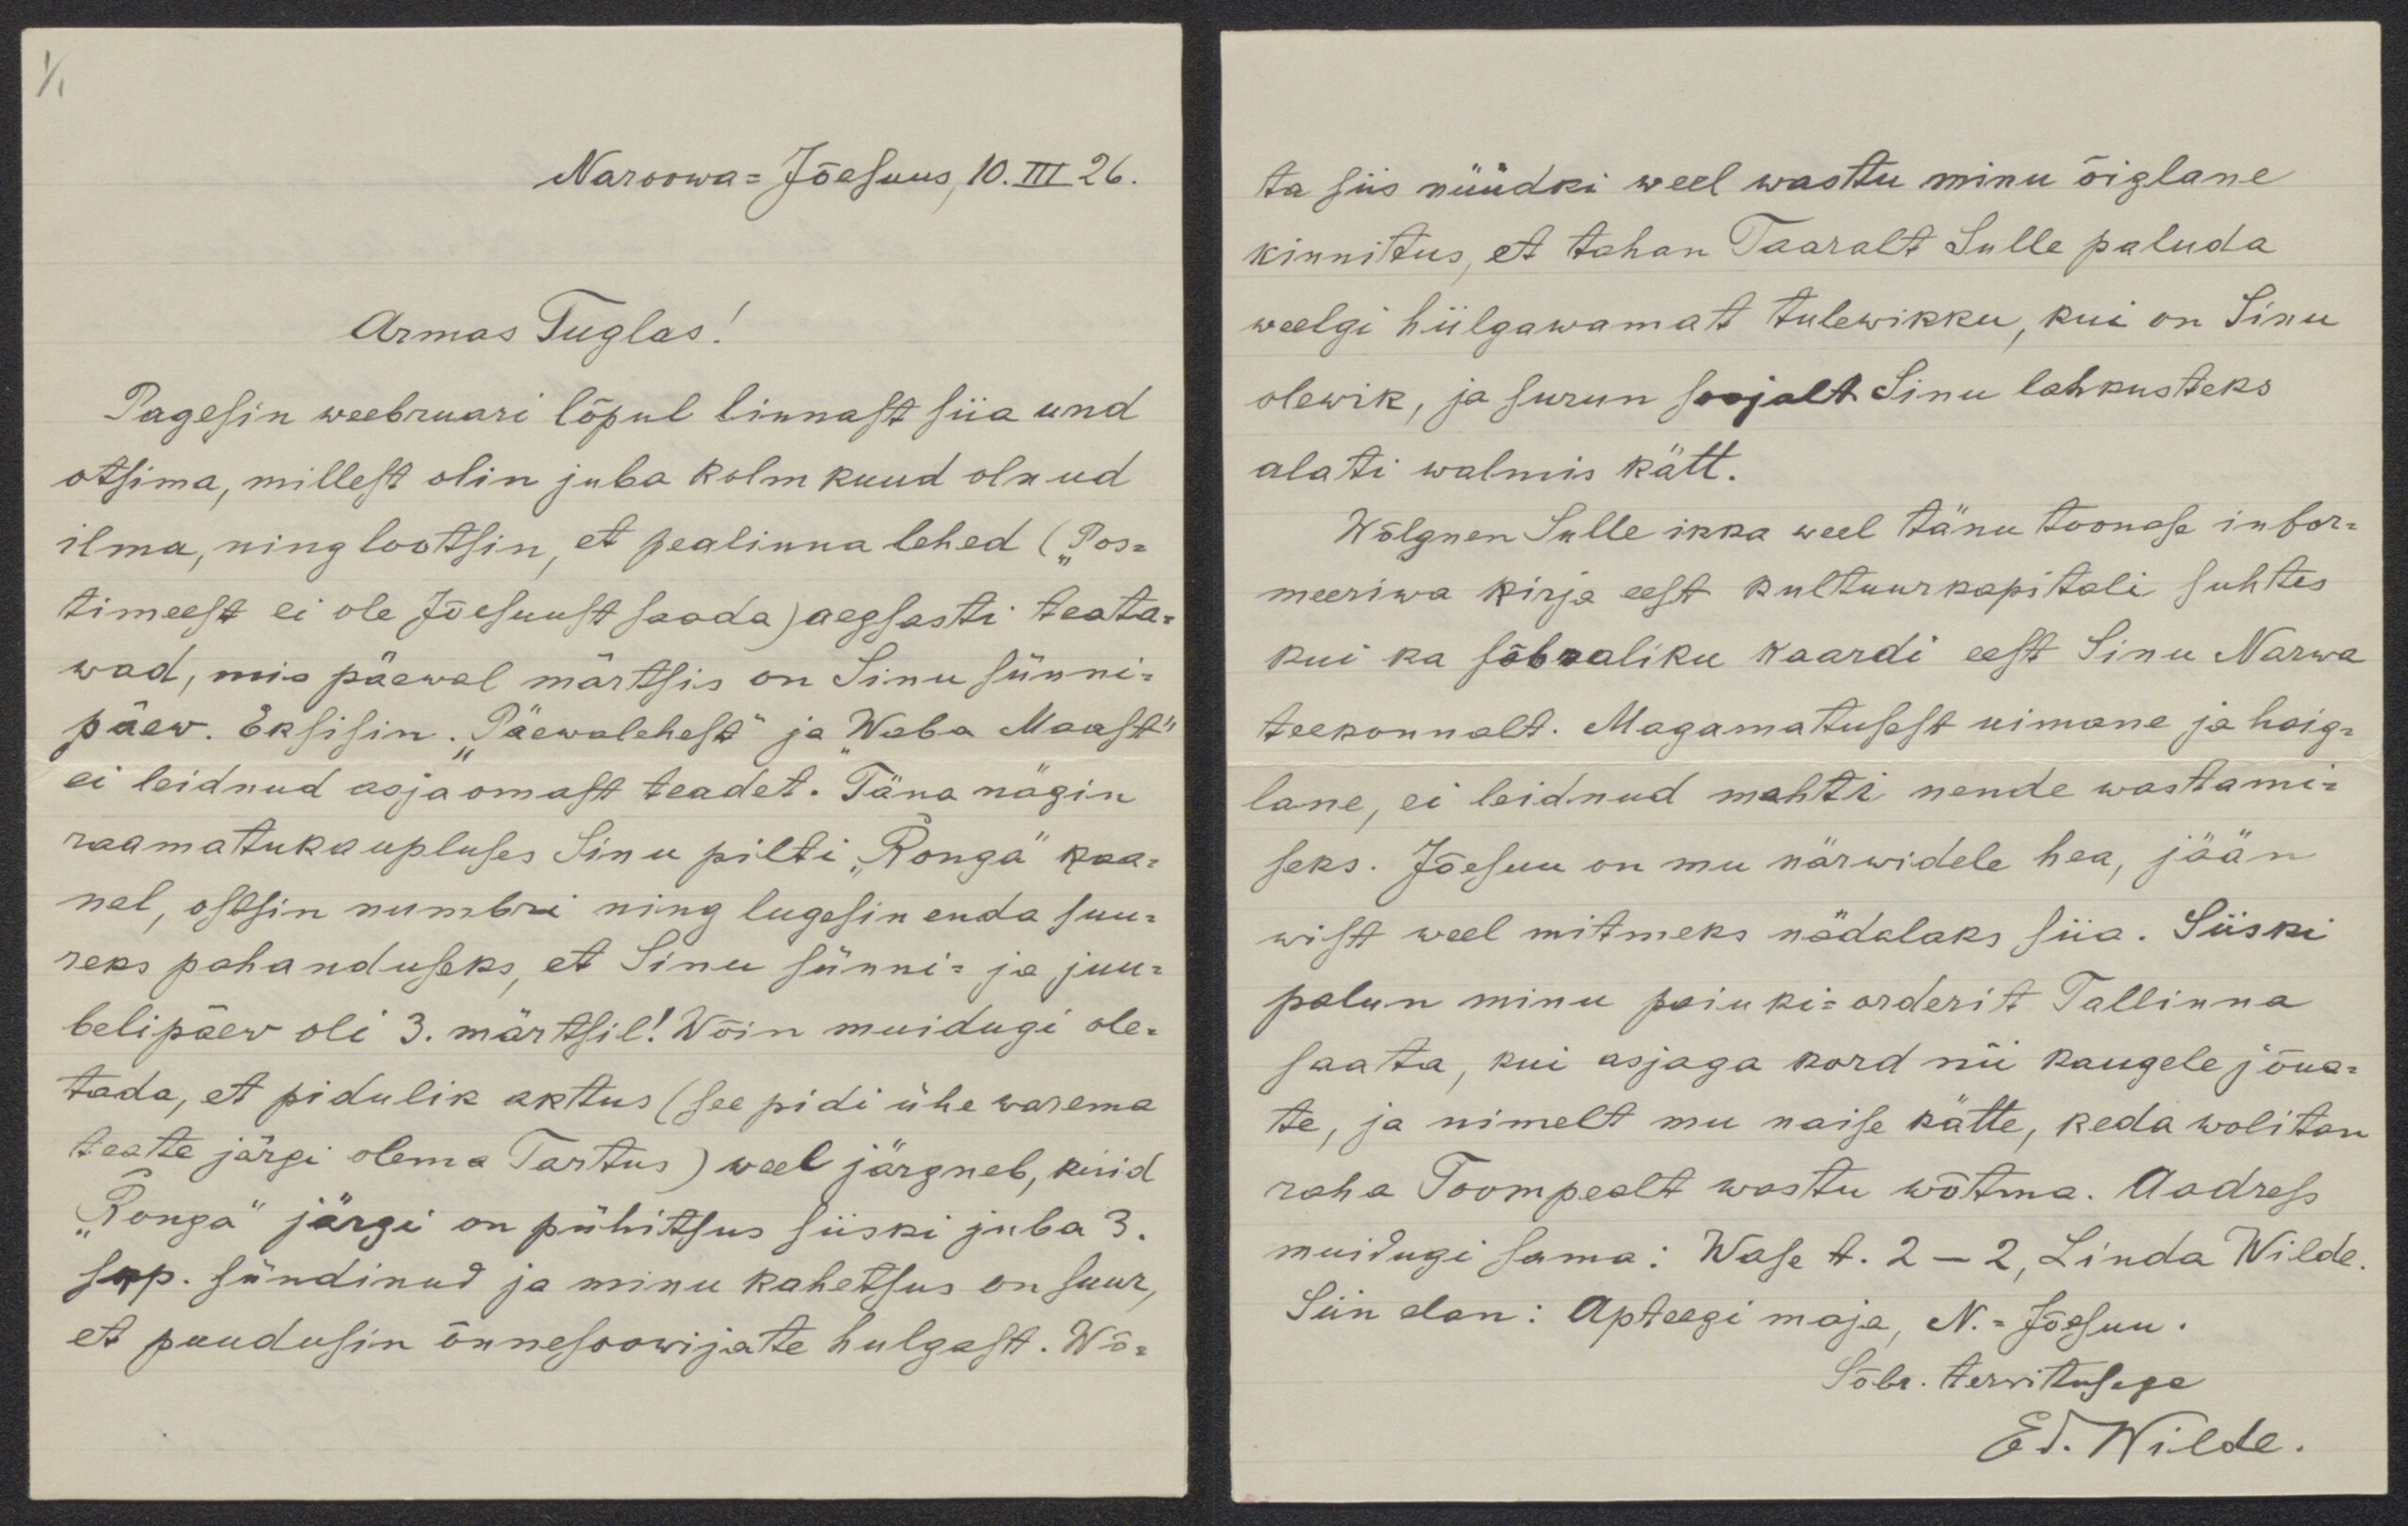 1/1
Naroowa=Jõesuus, 10. III 26.
Armas Tuglas!
Pagesin weebruari lõpul linnast siia und
otsima, millest olin juba kolm kuud olnud
ilma, ning lootsin, et pealinna lehed („Pos=
timeest ei ole Jõesuust saada) aegsasti teata=
wad, mis päewal märtsis on Sinu sünni=
päew. Eksisin. „Päewalehest" ja „Waba Maast"
ei leidnud asjaomast teadet. Täna nägin
raamatukaupluses Sinu pilti „Ronga" kaa=
nel, ostsin numbri ning lugesin enda suu=
reks pahanduseks, et Sinu sünni= ja juu=
belipäew oli 3. märtsil! Wõin muidugi ole=
tada, et pidulik aktus (see pidi ühe warema
teate järgi olema Tartus) weel järgneb, kuid
„Ronga" järgi on pühitsus siiski juba 3.
skp. sündinud ja minu kahetsus on suur,
et puudusin õnnesoowijate hulgast. Wõ=
ta siis nüüdki weel wastu minu õiglane
kinnitus, et tahan Taaralt Sulle paluda
weelgi hiilgawamat tulewikku, kui on Sinu
olewik, ja surun soojalt Sinu lahkusteks
alati walmis kätt.
Wõlgnen Sulle ikka weel tänu toonase infor=
meeriwa kirja eest kultuurkapitali suhtes
kui ka sõbraliku kaardi eest Sinu Narwa
teekonnalt. Magamatusest uimane ja haig=
lane, ei leidnud mahti nende wastami=
seks. Jõesuu on mu närwidele hea, jään
wist weel mitmeks nädalaks siia. Siiski
palun minu paiuki=orderit Tallinna
saata, kui asjaga kord nii kaugele jõua=
te, ja nimelt mu naise kätte, keda wolitan
raha Toompealt wastu wõtma. Aadress
muidugi sama: Wase t. 2 – 2, Linda Wilde.
Siin elan: Apteegi maja, N.=Jõesuu.
Sõbr. terwitusega
Ed. Wilde.